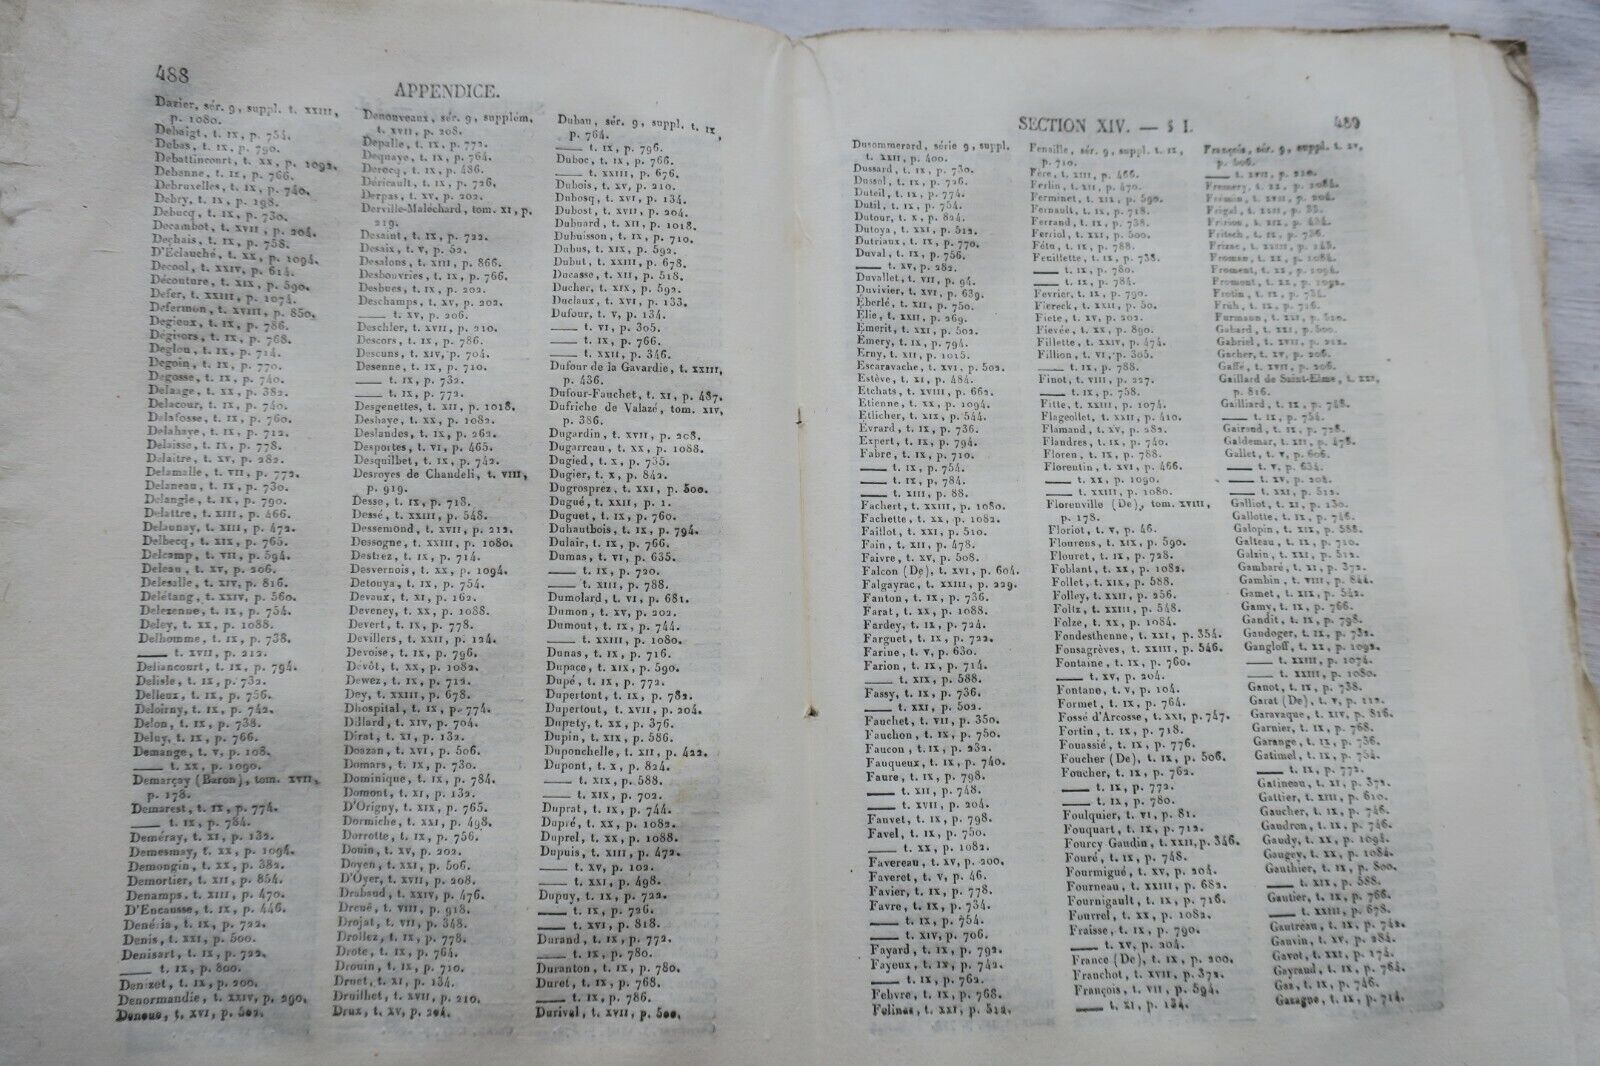 488
APPENDICE.
Dazier, sér. 9, suppl. t. XXIII,
p. 1080.
Debaigt, t. IX, p. 754.
Debas, t. IX, p. 790.
Debattincourt, t. XX, p. 1092.
Debenne, t. IX, p. 766.
Debruxelles, t. IX, p. 740.
Debry, t. IX, p. 198.
Debucq, t. IX, p. 730.
Decambot, t. XVII, p. 204.
Dechais, t. IX, p. 758.
D'Éclauché, t. XX, p. 1094.
Decool, t. XXIV, p. 614.
Découture, t. XIX, p. 590.
Defer, t. XXIII, p. 1074.
Defermon, t. XVIII, p. 850.
Degieux, t. IX, p. 786.
Degisors, t. IX, p. 768.
Deglou, t. IX, p. 714.
Degoin, t. IX, p. 770.
Degosse, t. IX, p. 740.
Delaage, t. XX, p. 382.
Delacour, t. IX, p. 740.
Delafosse, t. IX, p. 760.
Delahaye, t. IX, p. 712.
Delaisse, t. IX, p. 778.
Delaitre, t. XV, p. 282.
Delamalle, t. VII, p. 772.
Delaneau, t. IX, p. 730.
Delangle, t. IX, p. 790.
Delattre, t. XIII, p. 466.
Delaunay, t. XIII, p. 472.
Delbecq, t. XIX, p. 765.
Delcamp, t. VII, p. 594.
Deleau, t. XV, p. 206.
Delesalle, t. XIV, p. 816.
Delétang, t. XXIV, p. 560.
Delezenne, t. IX, p. 754.
Deley, t. XX, p. 1088.
Delhomme, t. IX, p. 738.
—— t. XVII, p. 212.
Deliancourt, t. IX, p. 794.
Delisle, t. IX, p. 732.
Delleux, t. IX, p. 756.
Deloirny, t. IX, p. 742.
Delon, t. IX, p. 738.
Deluy, t. IX, p. 766.
Demange, t. V, p. 108.
—— t. XX, p. 1090.
Demarçay (Baron), tom. XVII,
p. 178.
Demarest, t. IX, p. 774.
—— t. IX, p. 784.
Deméray, t. XI, p. 132.
Demesmay, t. XX, p. 1094.
Demongin, t. XX, p. 382.
Demortier, t. XII, p. 854.
Denamps, t. XIII, p. 470.
D'Encausse, t. IX, p. 446.
Denéria, t. IX, p. 722.
Denis, t. XXI, p. 500.
Denisart, t. IX, p. 722.
—— t. IX, p. 800.
Denizet, t. IX, p. 200.
Denormandie, t. XXIV, p. 290.
Denoue, t. XVI, p. 502.
Denouveaux, sér. 9, supplém.
t. XVII, p. 208.
Depalle, t. IX, p. 772.
Dequaye, t. IX, p. 764.
Derocq, t. IX, p. 486.
Déricault, t. IX, p. 726.
Derpas, t. XV, p. 202.
Derville-Maléchard, tom. XI, p.
219.
Desaint, t. IX, p. 722.
Desaix, t. V, p. 52.
Desalons, t. XIII, p. 866.
Desbouvries, t. IX, p. 766.
Desbues, t. IX, p. 202.
Deschamps, t. XV, p. 202.
—— t. XV, p. 206.
Deschler, t. XVII, p. 210.
Descors, t. IX, p. 786.
Descuns, t. XIV, p. 704.
Desenne, t. IX, p. 710.
—— t. IX, p. 732.
—— t. IX, p. 772.
Desgenettes, t. XII, p. 1018.
Deshaye, t. XX, p. 1082.
Deslandes, t. IX, p. 262.
Desportes, t. VI, p. 465.
Desquilbet, t. IX, p. 742.
Desroyes de Chandeli, t. VIII,
p. 919.
Desse, t. IX, p. 718.
Dessé, t. XXIII, p. 548.
Dessemond, t. XVII, p. 212.
Dessogne, t. XXIII, p. 1080.
Destrez, t. IX, p. 714.
Desvernois, t. XX, p. 1094.
Detouya, t. IX, p. 754.
Devaux, t. XI, p. 162.
Deveney, t. XX, p. 1088.
Devert, t. IX, p. 778.
Devillers, t. XXII, p. 124.
Devoise, t. IX, p. 796.
Dévôt, t. XX, p. 1082.
Dewez, t. IX, p. 712.
Dey, t. XXIII, p. 678.
Dhospital, t. IX, p. 774.
Dillard, t. XIV, p. 704.
Dirat, t. XI, p. 132.
Doazan, t. XVI, p. 506.
Domars, t. IX, p. 730.
Dominique, t. IX, p. 784.
Domont, t. XI, p. 132.
D'Origny, t. XIX, p. 765.
Dormiche, t. XXI, p. 498.
Dorrotte, t. IX, p. 756.
Douin, t. XV, p. 202.
Doyen, t. XXI, p. 506.
D'Oyer, t. XVII, p. 208.
Drabaud, t. XXIV, p. 476.
Drené, t. VIII, p. 918.
Drojat, t. VII, p. 348.
Drollez, t. IX, p. 778.
Drote, t. IX, p. 764.
Drouin, t. IX, p. 710.
Druet, t. XI, p. 134.
Druilhet, t. XVII, p. 210.
Drux, t. XV, p. 204.
Dubau, sér. 9, suppl. t. IX,
p. 764.
—— t. IX, p. 796.
Duboc, t. IX, p. 766.
—— t. XXIII, p. 676.
Dubois, t. XV, p. 210.
Dubosq, t. XVI, p. 134.
Dubost, t. XVII, p. 204.
Dubuard, t. XII, p. 1018.
Dubuisson, t. IX, p. 710.
Dubus, t. XIX, p. 592.
Dubut, t. XXIII, p. 678.
Ducasse, t. XII, p. 518.
Ducher, t. XIX, p. 592.
Duclaux, t. XVI, p. 133.
Dufour, t. V, p. 134.
—— t. VI, p. 305.
—— t. IX, p. 766.
—— t. XXII, p. 346.
Dufour de la Gavardie, t. XXIII,
p. 436.
Dufour-Fauchet, t. XI, p. 487.
Dufriche de Valazé, tom. XIV,
p. 386.
Dugardin, t. XVII, p. 208.
Dugarreau, t. XX, p. 1088.
Dugied, t. X, p. 755.
Dugier, t. X, p. 842.
Dugrosprez, t. XXI, p. 500.
Dugué, t. XXII, p. 1.
Duguet, t. IX, p. 760.
Duhautbois, t. IX, p. 794.
Dulair, t. IX, p. 766.
Dumas, t. VI, p. 635.
—— t. IX, p. 720.
—— t. XIII, p. 788.
Dumolard, t. VI, p. 681.
Dumon, t. XV, p. 202.
Dumout, t. IX, p. 744.
—— t. XXIII, p. 1080.
Dunas, t. IX, p. 716.
Dupace, t. XIX, p. 590.
Dupé, t. IX, p. 772.
Dupertont, t. IX, p. 782.
Dupertout, t. XVII, p. 204.
Dupety, t. XX, p. 376.
Dupin, t. XIX, p. 586.
Duponchelle, t. XII, p. 422.
Dupont, t. X, p. 824.
—— t. XIX, p. 588.
—— t. XIX, p. 702.
Duprat, t. IX, p. 744.
Dupré, t. XX, p. 1082.
Duprel, t. XX, p. 1088.
Dupuis, t. XIII, p. 472.
—— t. XV, p. 102.
—— t. XXI, p. 498.
Dupuy, t. IX, p. 722.
—— t. IX, p. 726.
—— t. XVI, p. 818.
Durand, t. IX, p. 772.
—— t. IX, p. 780.
Duranton, t. IX, p. 780.
Duret, t. IX, p. 768.
—— t. IX, p. 786.
Durival, t. XVII, p. 500.
SECTION XIV. — § I.
489
Dusommerard, série 9, suppl.
t. XXII, p. 400.
Dussard, t. IX, p. 730.
Dussol, t. IX, p. 726.
Duteil, t. IX, p. 774.
Dutil, t. IX, p. 754.
Dutour, t. X, p. 824.
Dutoya, t. XXI, p. 512.
Dutriaux, t. IX, p. 770.
Duval, t. IX, p. 756.
—— t. XV, p. 282.
Duvallet, t. VII, p. 94.
Duvivier, t. XVI, p. 639.
Éberlé, t. XII, p. 750.
Élie, t. XXII, p. 269.
Émerit, t. XXI, p. 502.
Émery, t. IX, p. 794.
Erny, t. XII, p. 1015.
Escaravache, t. XVI, p. 502.
Estève, t. XI, p. 484.
Etchats, t. XVIII, p. 662.
Étienne, t. XX, p. 1094.
Etlicher, t. XIX, p. 544.
Évrard, t. IX, p. 736.
Expert, t. IX, p. 794.
Fabre, t. IX, p. 710.
—— t. IX, p. 754.
—— t. IX, p. 784.
—— t. XIII, p. 88.
Fachert, t. XXIII, p. 1080.
Fachette, t. XX, p. 1082.
Faillot, t. XXI, p. 510.
Fain, t. XII, p. 478.
Faivre, t. XV, p. 508.
Falcon (De), t. XVI, p. 604.
Falgayrac, t. XXIII, p. 229.
Fanton, t. IX, p. 736.
Farat, t. XX, p. 1088.
Fardey, t. IX, p. 724.
Farguet, t. IX, p. 722.
Farine, t. V, p. 630.
Farion, t. IX, p. 714.
—— t. XIX, p. 588.
Fassy, t. IX, p. 736.
—— t. XXI, p. 502.
Fauchet, t. VII, p. 350.
Fauchon, t. IX, p. 750.
Faucon, t. IX, p. 232.
Fauqueux, t. IX, p. 740.
Faure, t. IX, p. 798.
—— t. XII, p. 748.
—— t. XVII, p. 204.
Fauvet, t. IX, p. 798.
Favel, t. IX, p. 750.
—— t. XX, p. 1082.
Favereau, t. XV, p. 200.
Faveret, t. V, p. 46.
Favier, t. IX, p. 778.
Favre, t. IX, p. 734.
—— t. IX, p. 754.
—— t. XIV, p. 706.
Fayard, t. IX, p. 792.
Fayeux, t. IX, p. 742.
—— t. IX, p. 762.
Febvre, t. IX, p. 768.
Felinas, t. XXI, p. 512.
Fenaille, sér. 9, suppl. t. IX,
p. 710.
Fère, t. XIII, p. 466.
Ferlin, t. XII, p. 470.
Ferminet, t. XIX, p. 590.
Fernault, t. IX, p. 718.
Ferrand, t. IX, p. 738.
Ferriol, t. XXI, p. 500.
Fétu, t. IX, p. 788.
Feuillette, t. IX, p. 738.
—— t. IX, p. 780.
—— t. IX, p. 784.
Fevrier, t. IX, p. 790.
Fiereck, t. XXII, p. 50.
Fiete, t. XV, p. 202.
Fievée, t. XX, p. 890.
Fillette, t. XXIV, p. 474.
Fillion, t. VI, p. 305.
—— t. IX, p. 788.
Finot, t. VIII, p. 227.
—— t. IX, p. 758.
Fitte, t. XXIII, p. 1074.
Flageollet, t. XVII, p. 410.
Flamand, t. XV, p. 282.
Flandres, t. IX, p. 740.
Floren, t. IX, p. 788.
Florentin, t. XVI, p. 466.
—— t. XX, p. 1090.
—— t. XXIII, p. 1080.
Florenville (De), tom. XVIII,
p. 178.
Floriot, t. V, p. 46.
Flourens, t. XIX, p. 590.
Flouret, t. IX, p. 728.
Foblant, t. XX, p. 1082.
Follet, t. XIX, p. 588.
Folley, t. XXII, p. 256.
Foltz, t. XXIII, p. 548.
Folze, t. XX, p. 1084.
Fondesthenne, t. XXI, p. 354.
Fonsagrèves, t. XXIII, p. 546.
Fontaine, t. IX, p. 760.
—— t. XV, p. 204.
Fontano, t. V, p. 104.
Formet, t. IX, p. 764.
Fossé d'Arcosse, t. XXI, p. 747.
Fortin, t. IX, p. 718.
Fouassié, t. IX, p. 776.
Foucher (De), t. IX, p. 506.
Foucher, t. IX, p. 762.
—— t. IX, p. 772.
—— t. IX, p. 780.
Foulquier, t. VI, p. 81.
Fouquart, t. IX, p. 712.
Fourcy Gaudin, t. XXII, p. 346.
Fouré, t. IX, p. 748.
Fourmigué, t. XV, p. 204.
Fourneau, t. XXIII, p. 682.
Fournigault, t. IX, p. 716.
Fourrel, t. XX, p. 1082.
Fraisse, t. IX, p. 790.
—— t. XV, p. 204.
France (De), t. IX, p. 200.
Franchot, t. XVII, p. 372.
François, t. VII, p. 594.
—— t. XI, p. 134.
François, sér. 9, suppl. t. XV,
p. 506.
—— t. XVII, p. 210.
Fremery, t. XX, p. 1084.
Frémin, t. XVII, p. 204.
Fririon, t. XII, p. 434.
Fritsch, t. IX, p. 736.
Frizac, t. XXIII, p. 245.
Froman, t. XX, p. 1084.
Froment, t. XX, p. 1094.
Fromont, t. XX, p. 1092.
Frotin, t. IX, p. 734.
Früh, t. IX, p. 716.
Furmann, t. XXI, p. 510.
Gabard, t. XXI, p. 500.
Gabriel, t. XVII, p. 212.
Gacher, t. XV, p. 206.
Gaffé, t. XVII, p. 206.
Gaillard de Saint-Elme, t. XXI,
p. 816.
Gailliard, t. IX, p. 748.
—— t. IX, p. 754.
Gairaud, t. IX, p. 728.
Galdemar, t. XII, p. 478.
Gallet, t. V, p. 606.
—— t. V, p. 634.
—— t. XV, p. 208.
—— t. XXI, p. 512.
Galliot, t. XI, p. 130.
Gallotte, t. IX, p. 746.
Galopin, t. XIX, p. 588.
Galteau, t. IX, p. 710.
Galzin, t. XXI, p. 512.
Gambaré, t. XI, p. 372.
Gambin, t. VIII, p. 844.
Gamet, t. XIX, p. 542.
Gamy, t. IX, p. 766.
Gandit, t. IX, p. 798.
Gandoger, t. IX, p. 732.
Gangloff, t. XX, p. 1092.
—— t. XXIII, p. 1074.
—— t. XXIII, p. 1080.
Ganot, t. IX, p. 738.
Garat (De), t. V, p. 112.
Garavaque, t. XIV, p. 816.
Garnier, t. IX, p. 768.
Garange, t. IX, p. 736.
Gatimel, t. IX, p. 754.
—— t. IX, p. 772.
Gatineau, t. XI, p. 372.
Gattier, t. XIII, p. 610.
Gaucher, t. IX, p. 746.
Gaudron, t. IX, p. 746.
Gaudy, t. XX, p. 1094.
Gaugey, t. XX, p. 1084.
Gauthier, t. IX, p. 800.
—— t. XIX, p. 588.
Gautier, t. IX, p. 766.
—— t. XXIII, p. 678.
Gautréau, t. IX, p. 742.
Gauvin, t. XV, p. 284.
Gavot, t. XXI, p. 174.
Gayraud, t. IX, p. 784.
Gaz, t. IX, p. 746.
Gazagne, t. IX, p. 714.